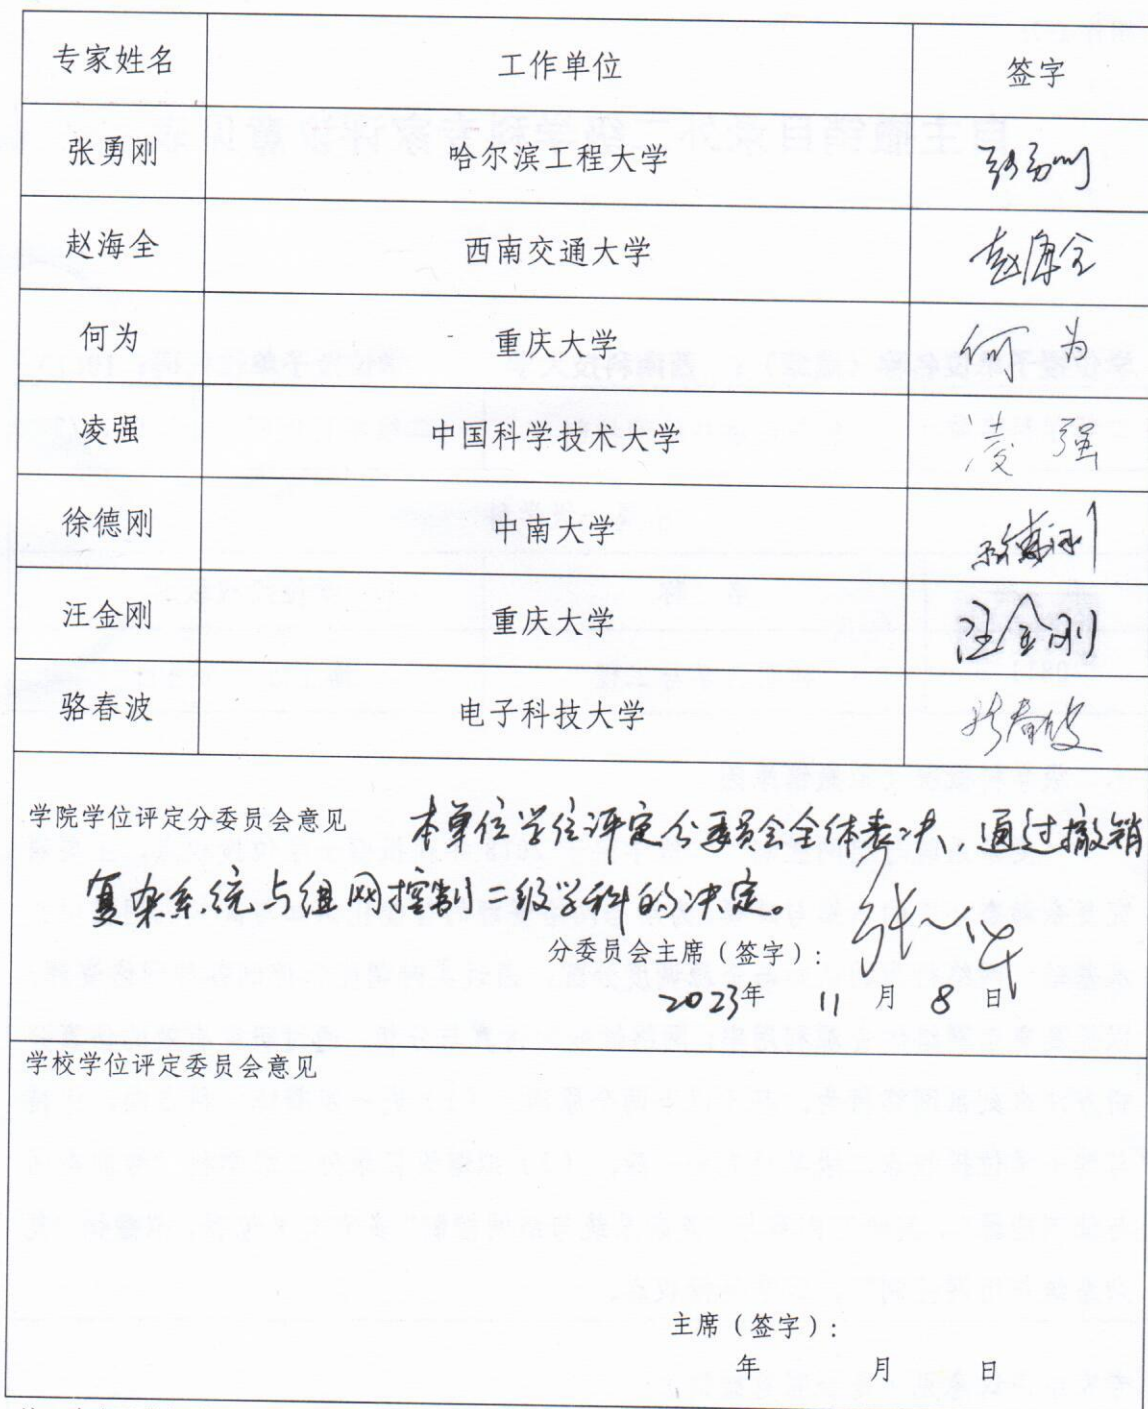 专家姓名 工作单位 签字
张勇刚 哈尔滨工程大学 张勇刚
赵海全 西南交通大学 赵海全
何为 重庆大学 何为
凌强 中国科学技术大学 凌强
徐德刚 中南大学 徐德刚
汪金刚 重庆大学 汪金刚
骆春波 电子科技大学 骆春波
学院学位评定分委员会意见 本单位学位评定分委员会全体表决，通过撤销
复杂系统与组网控制二级学科的决定。
分委员会主席（签字）：
2023年 11 月 8 日
学校学位评定委员会意见
主席（签字）：
年 月 日